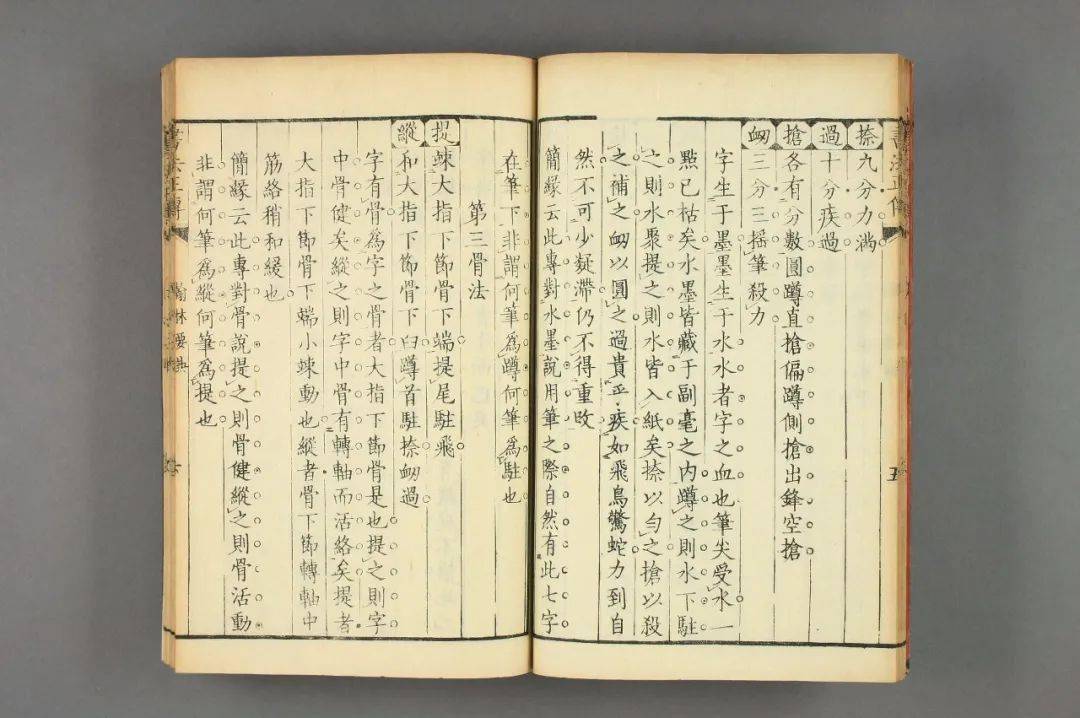 捺九分力滿
過十分疾過
搶各有分數圓蹲直搶偏蹲側搶出鋒空搶
衄三分三摇筆殺力
字生于墨墨生于水水者字之血也筆尖受水一
點已枯矣水墨皆藏于副毫之内蹲之則水下駐
之則水聚提之則水皆入紙矣捺以勻之搶以殺
之補之衄以圓之過貴乎疾如飛鳥驚蛇力到自
然不可少疑滯仍不得重改
簡緣云此專對水墨說用筆之際自然有此七字
在筆下非謂何筆為蹲何筆為駐也
第三骨法
提竦大指下節骨下端提尾駐飛
縱和大指下節骨下臼蹲首駐捺衄過
字有骨為字之骨者大指下節骨是也提之則字
中骨健矣縱之則字中骨有轉軸而活絡矣提者
大指下節骨下端小竦動也縱者骨下節轉軸中
筋絡稍和緩也
簡緣云此專對骨說提之則骨健縱之則骨活動
非謂何筆為縱何筆為提也
書法正傳
五
書法正傳
翰林要訣